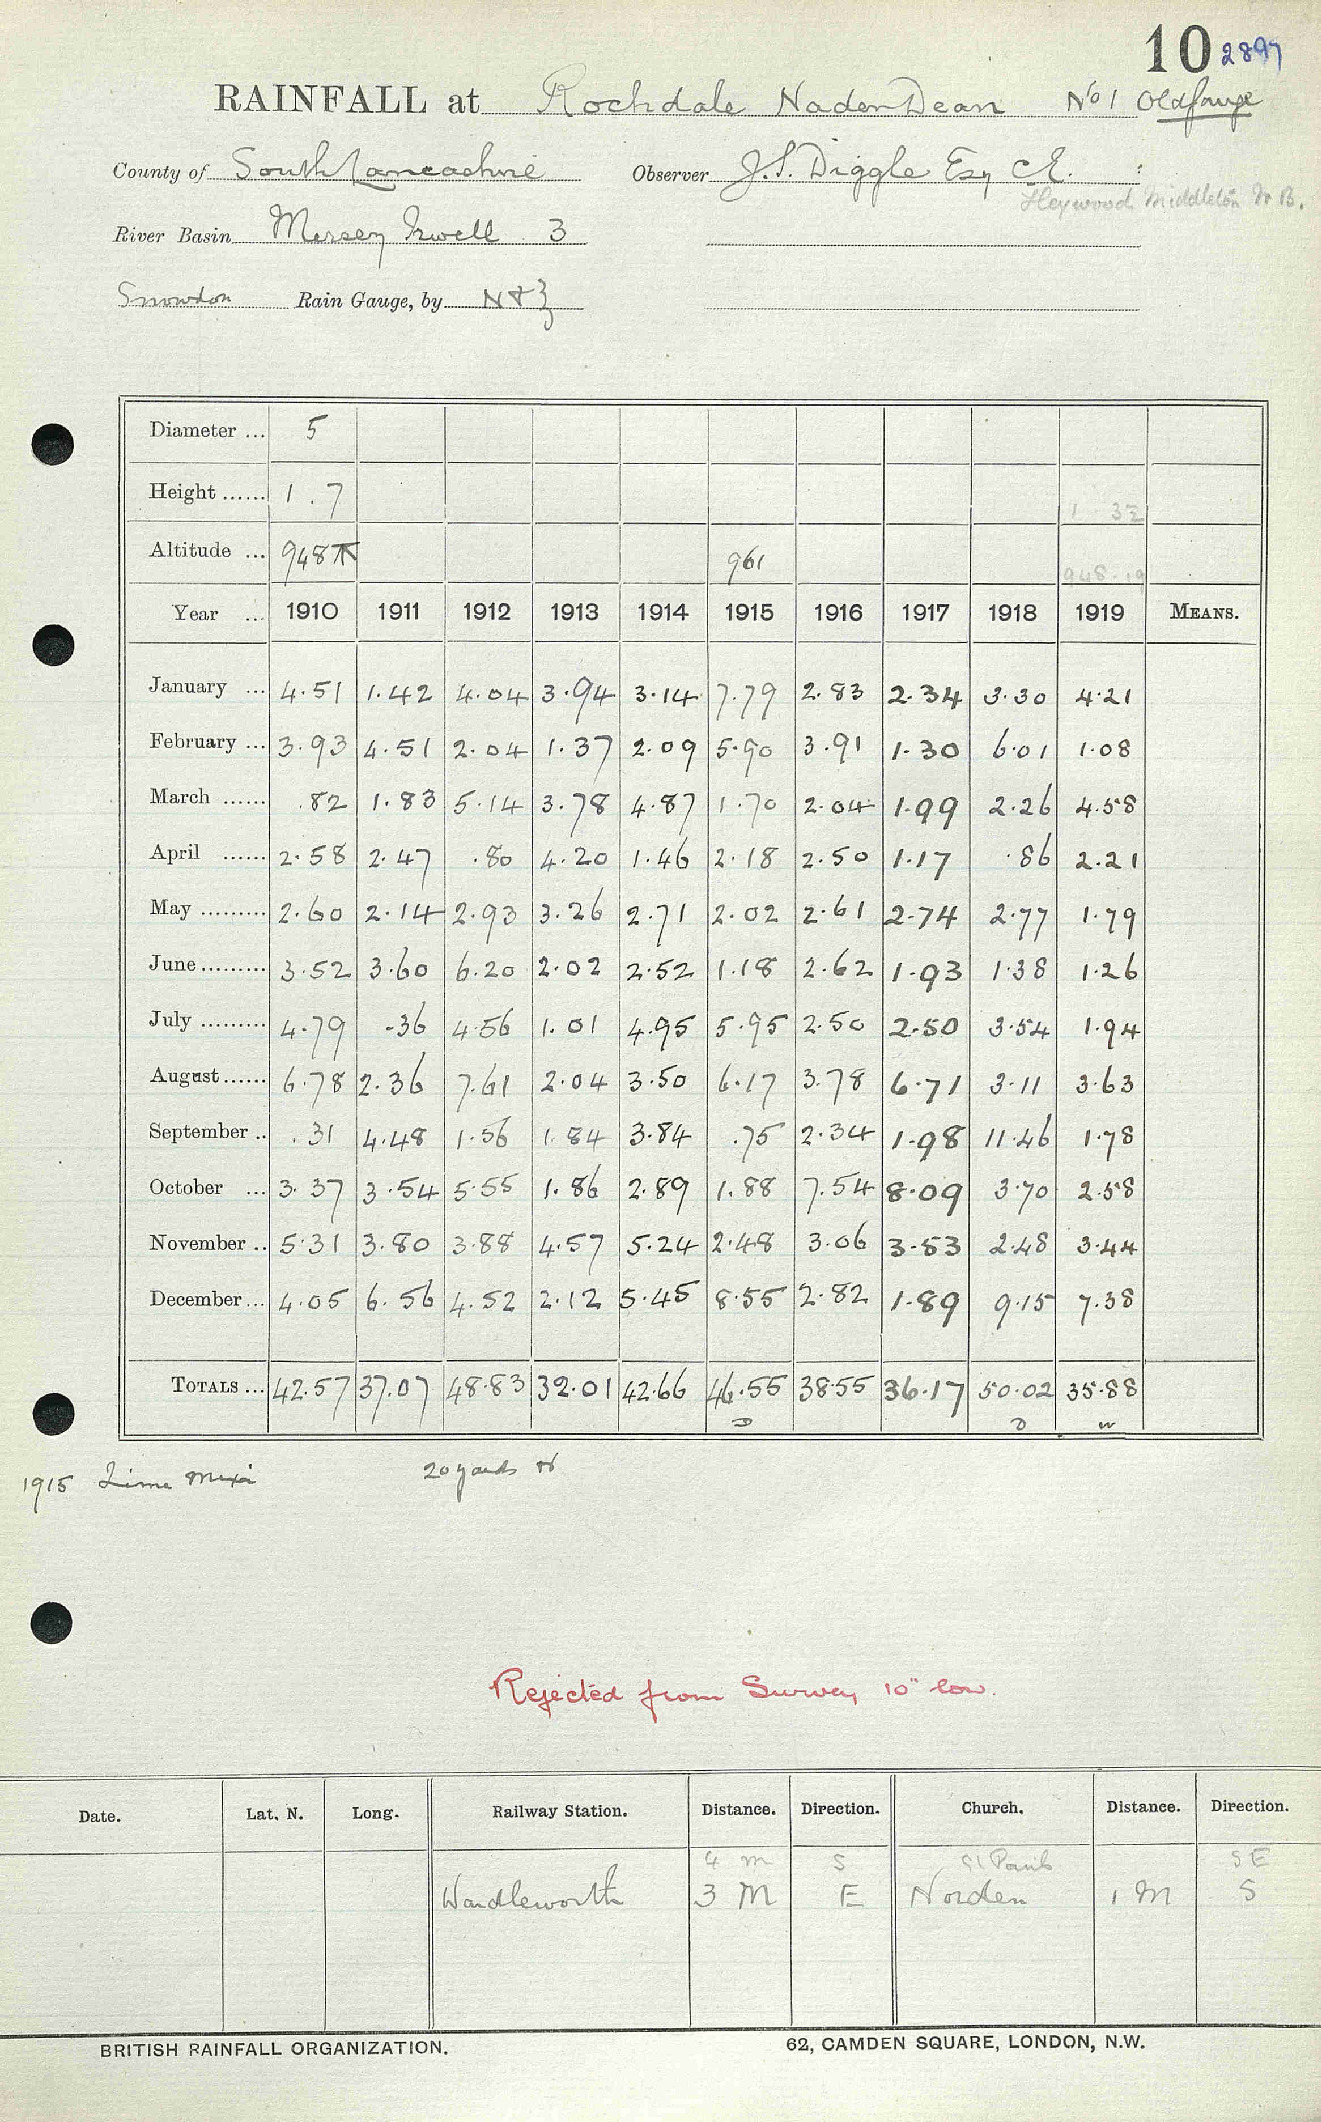 10 2897
RAINFALL at Rochdale Naden Dean No 1 Old Gauge
County of South Lancashire Observer J. S. Diggle Esq C.E.
Heywood Middleton W B.
River Basin Mersey Irwell 3
Snowdon Rain Gauge, by N & Z
Diameter ... 5
Height ...... 1 . 7 1 32
Altitude ... 948 961 948.19
Year ... 1910 1911 1912 1913 1914 1915 1916 1917 1918 1919 MEANS.
January ... 4.51 1.42 4.04 3.94 3.14 7.79 2.83 2.34 3.30 4.21
February ... 3.93 4.51 2.04 1.37 2.09 5.90 3.91 1.30 6.01 1.08
March ...... .82 1.83 5.14 3.78 4.87 1.70 2.04 1.99 2.26 4.58
April ...... 2.58 2.47 .80 4.20 1.46 2.18 2.50 1.17 .86 2.21
May ......... 2.60 2.14 2.93 3.26 2.71 2.02 2.61 2.74 2.77 1.79
June ......... 3.52 3.60 6.20 2.02 2.52 1.18 2.62 1.93 1.38 1.26
July ......... 4.79 .36 4.56 1.01 4.95 5.95 2.50 2.50 3.54 1.94
August ...... 6.78 2.36 7.61 2.04 3.50 6.17 3.78 6.71 3.11 3.63
September .. .31 4.48 1.56 1.84 3.84 .75 2.34 1.98 11.46 1.78
October ... 3.37 3.54 5.55 1.86 2.89 1.88 7.54 8.09 3.70 2.58
November .. 5.31 3.80 3.88 4.57 5.24 2.48 3.06 3.53 2.48 3.44
December ... 4.05 6.56 4.52 2.12 5.45 8.55 2.82 1.89 9.15 7.38
TOTALS ... 42.57 37.07 48.83 32.01 42.66 46.55 38.55 36.17 50.02 35.88
D D W
1915 20 yards N
Rejected from Survey 10" low.
Date. Lat. N. Long. Railway Station. Distance. Direction. Church. Distance. Direction.
4 m S St Pauls S E
Wardleworth 3 M E Norden 1 M S
BRITISH RAINFALL ORGANIZATION. 62, CAMDEN SQUARE, LONDON, N.W.